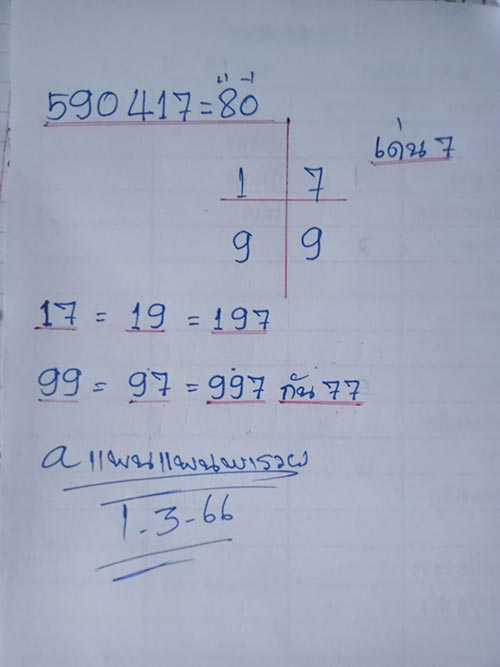 590417=80
เด่น 7
1 7
9 9
17 = 19 = 197
99 = 97 = 997 กัน 77
a แพนแพนพารวย
1-3-66